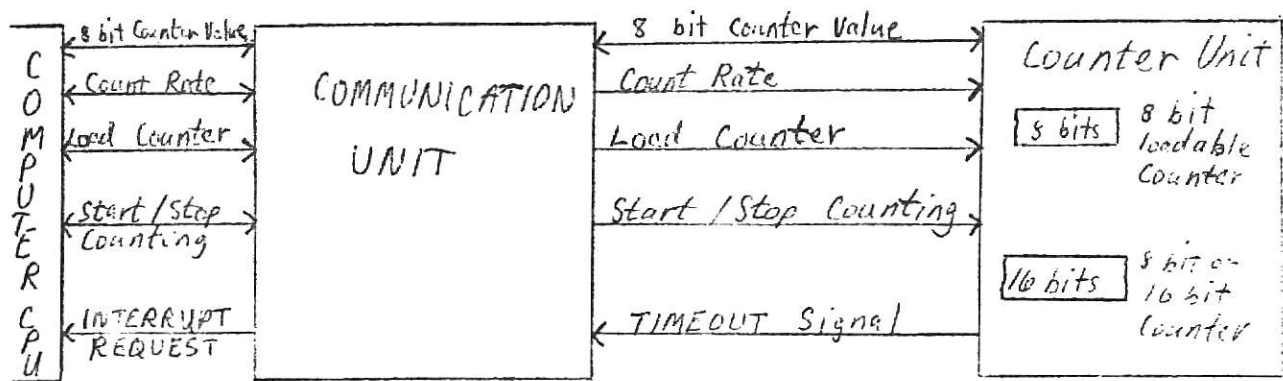 COMPUTER CPU
8 bit Counter Value
Count Rate
Load Counter
Start/Stop
Counting
INTERRUPT
REQUEST
COMMUNICATION
UNIT
8 bit Counter Value
Count Rate
Load Counter
Start/Stop Counting
TIMEOUT Signal
Counter Unit
8 bits
8 bit
loadable
Counter
16 bits
8 bit or
16 bit
Counter